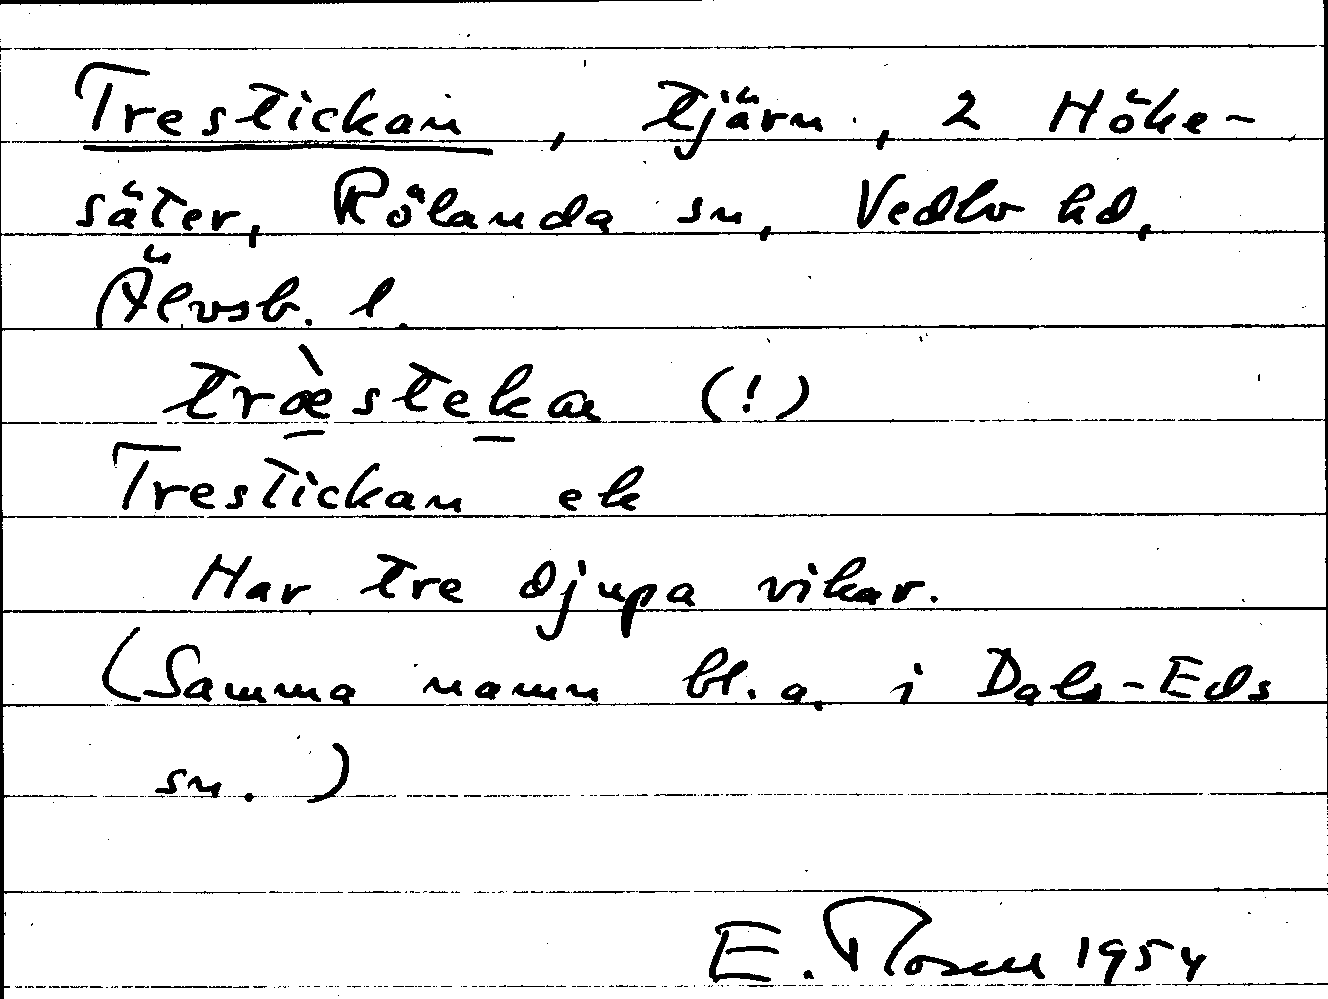 Trestickan, tjärn, 2 Höke-
säter, Rölanda sn, Vedbo hd,
Älvsb. l.
træ̀stekæ (!)
Trestickan ek
Har tre djupa vikar.
(Samma namn bl. a. i Dals-Eds
sn.)
E. Rosen 1954